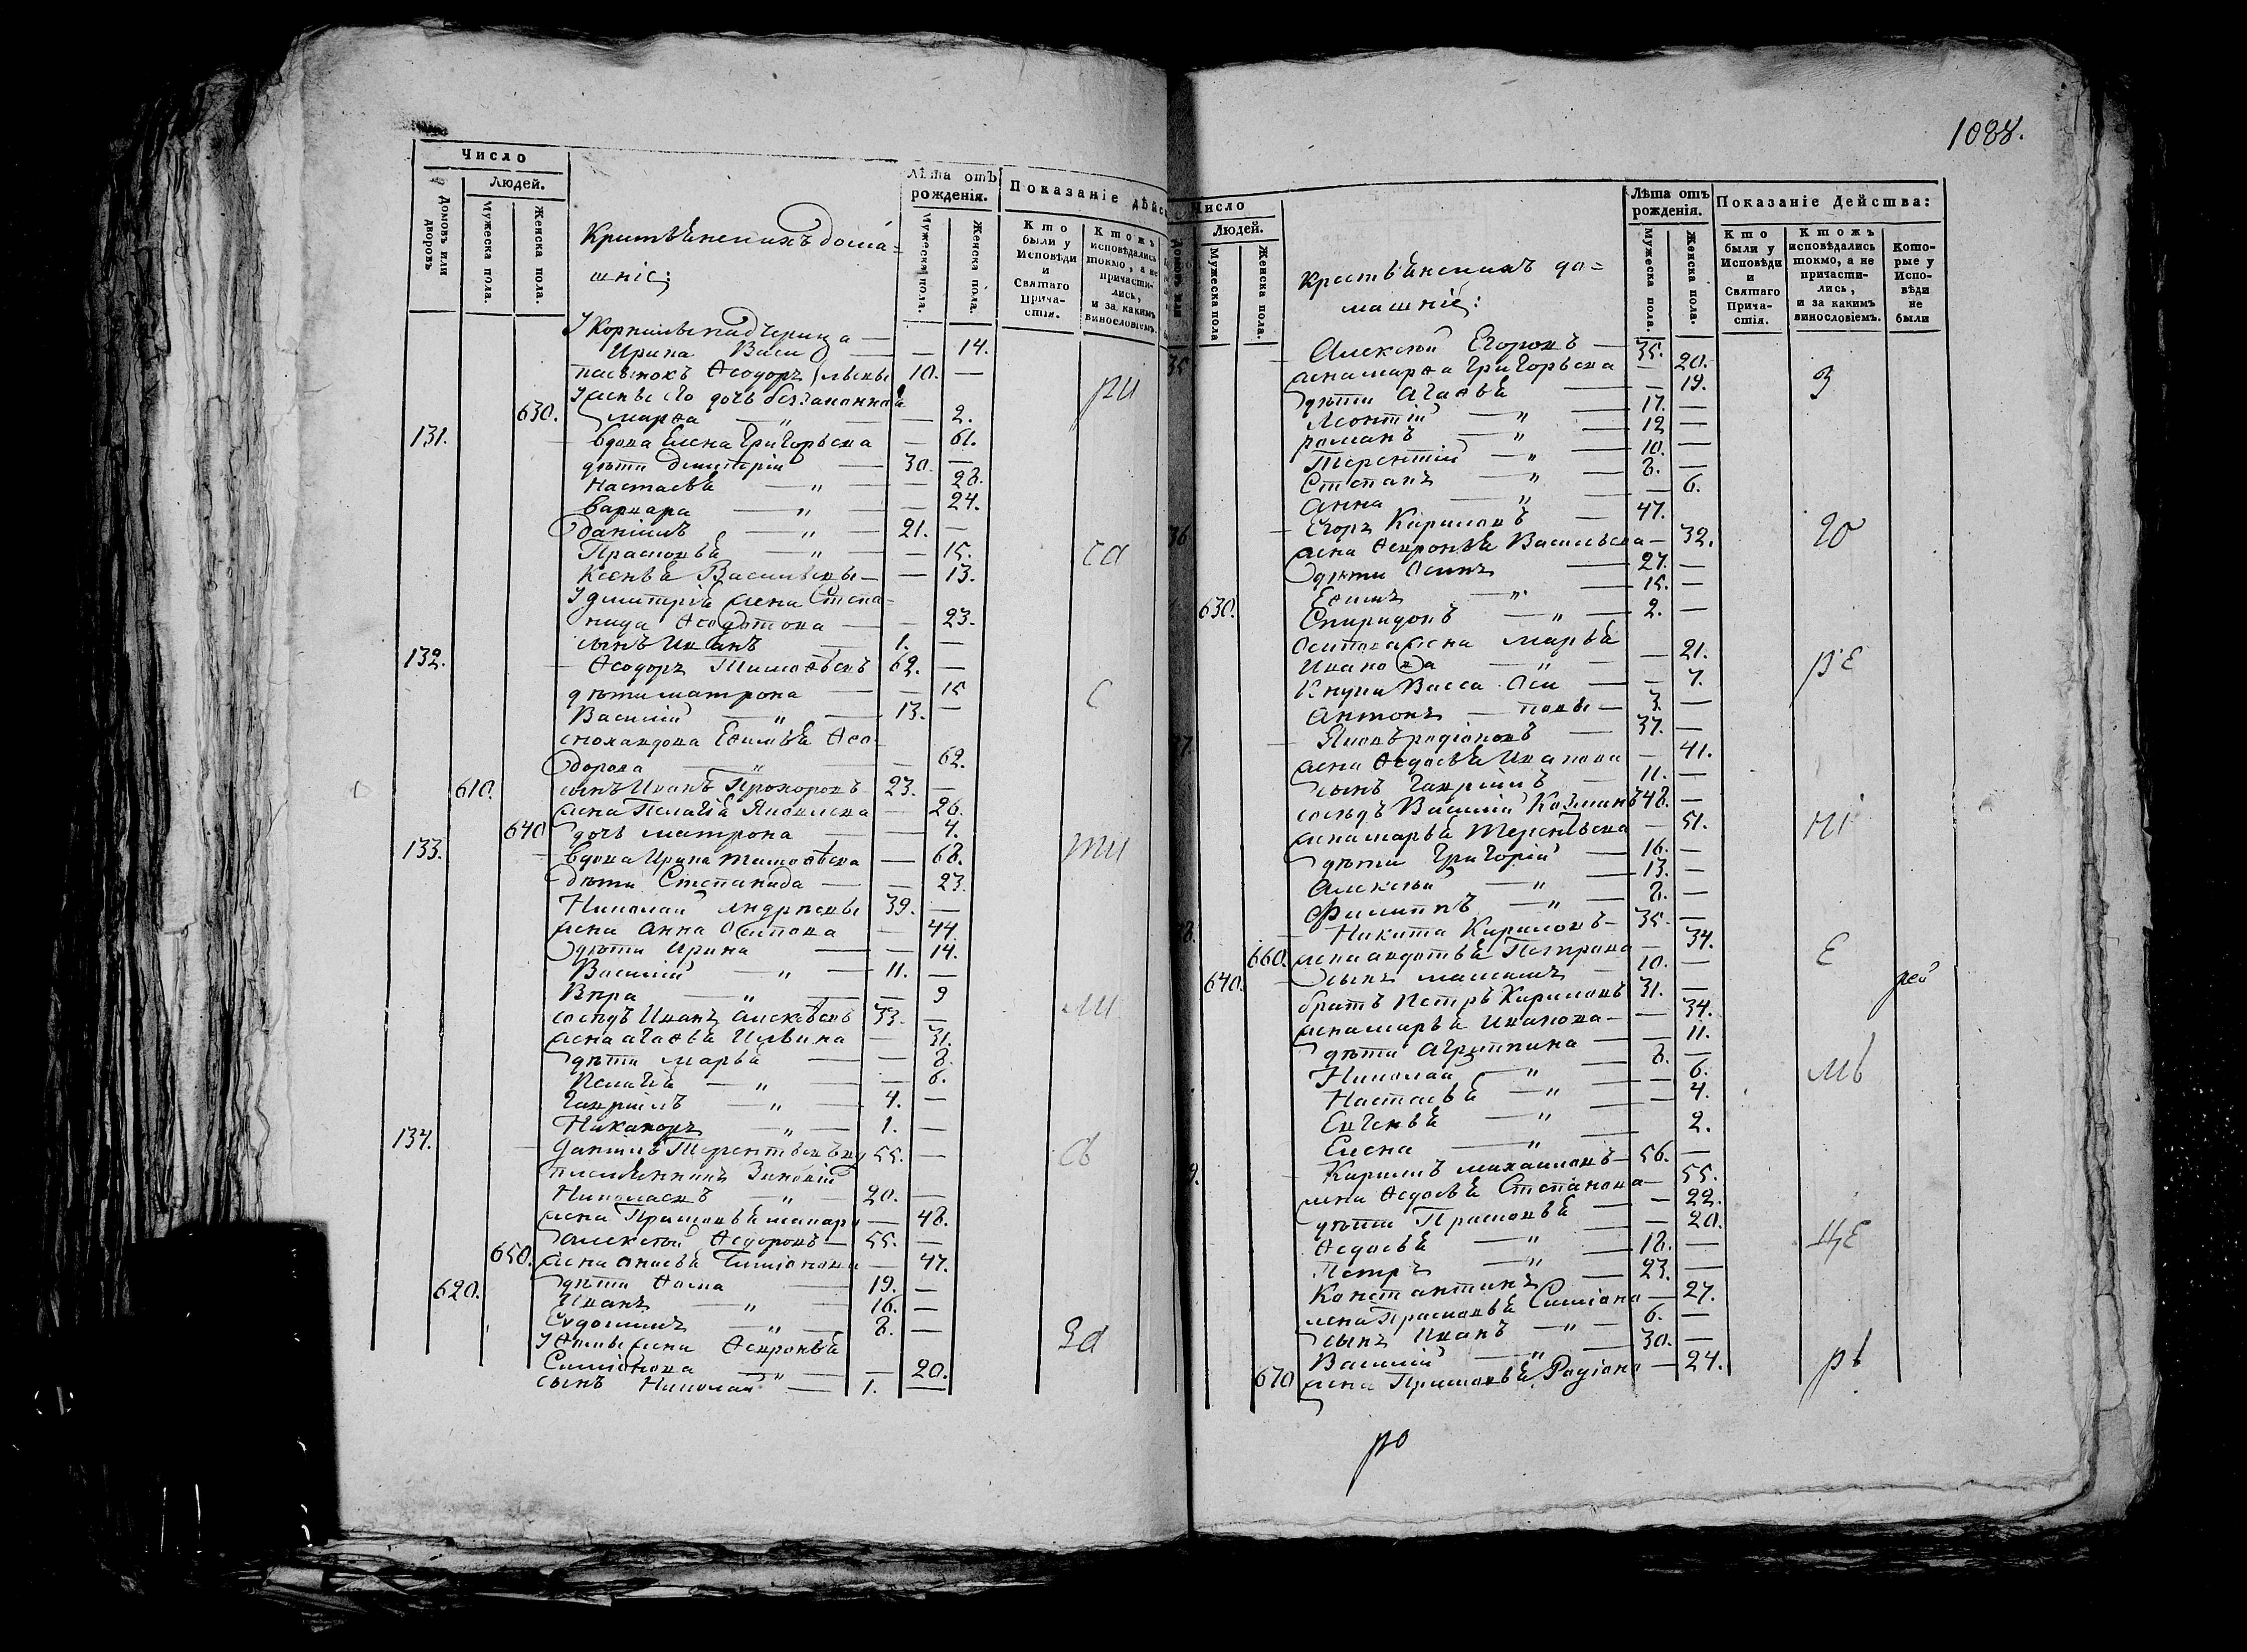 1088.
Число
Людей.
Домовъ или дворовъ
Мужеска пола.
Женска пола.
Крестьянскихъ дома=
шніе;
Лѣта отъ
рожденія.
Мужеска пола.
Женска пола.
Показаніе дѣйс
Кто были у Исповѣди и Святаго Прича-стія.
Ктожъ исповѣдались токмо, а не причасти-лись, и за какимъ винословіемъ.
У Корнилы падчерица —
Ирина Васи — — 14.
пасынокъ Ѳеодоръ льевы 10. —
630. Марѳа — " — — 2.
131. — вдова Елена Григорьева — 61.
дѣти Димитрій — 30. —
Настасья — " — — 28.
Варвара — " — — 24.
Даніилъ — " — 21. —
Прасковья — " — — 15.
Ксенья Васильевы — — 13.
У Дмитрія жена Степа-
нида Ѳедотова — — 23.
сынъ Иванъ — 1. —
132. — Ѳеодоръ Тимоѳѣевъ 62. —
дѣти Матрона — — 15
Василій — " — 13. —
сноха вдова Евимья Ѳео-
дорова — " — — 62.
610. сынъ Иванъ Прохоровъ 23. —
жена Пелагія Яковлева — 26.
640 дочь Матрона — — 4.
133. — вдова Ирина Тимоѳѣева — 68.
дѣти Степанида — — 23.
Николай Андрѣевы 39. —
жена Анна Осипова — 44.
дѣти Ирина — — 14.
Василій — " — 11. —
Вѣра — " — — 9
сосѣдъ Иванъ Алексѣевъ 33. —
жена Агаѳья Ильина — 31.
дѣти Марья — — 8.
Пелагія — " — — 6.
Гавріилъ — " — 4. —
Никаноръ — " — 1. —
134. — Даніилъ Терентьевъ 55. —
племянникъ Зиновій
Николаевъ — " — 20. —
жена Прасковья Макаро — 48.
Алексѣй Ѳедоровъ — 55. —
650. жена Анисья Симіонова — 47.
620. дѣти Ѳома — 19. —
Иванъ — " — 16. —
Евдокимъ — " — 8. —
У Ѳомы жена Ѳевронья
Симіонова — " — — 20.
сынъ Николай — 1. —
Число
Людей.
Мужеска пола
Женска пола.
Крестьянскихъ до=
машніе:
Лѣта отъ
рожденія.
Мужеска пола.
Женска пола.
Показаніе Действа:
Кто были у Исповѣди и Святаго Прича-стія.
Ктожъ исповѣдались токмо, а не причасти-лись, и за какимъ винословіемъ.
Кото-рые у Испо-вѣди не были
35. — Алексѣй Егоровъ — 35. —
жена Марѳа Григорьева — 20.
дѣти Агаѳья — — 19.
Леонтій — " — 17. —
Романъ — " — 12 —
Терентій — " — 10. —
Степанъ — " — 8. —
Анна — " — — 6.
36. — Егоръ Кириловъ — 47.
жена Ѳевронья Васильева — 32.
дѣти Осипъ — 27. —
Еѳимъ — " — 15. —
630. Спиридонъ — " — 2. —
Осипова жена Марья
Иванова — " — — 21.
внуки Васса Оси — — 7.
Антонъ — повы — 3. —
37. — Яковъ Родіоновъ — 37. —
жена Ѳедосья Иванова — 41.
сынъ Гавріилъ — 11. —
сосѣдъ Василій Козминъ 48. —
жена Марья Терентьева — 51.
дѣти Григорій — 16. —
Алексѣй — " — 13. —
Филиппъ — " — 8. —
38. — Никита Кириловъ — 35. —
660. жена Авдотья Петрова — 34.
640. сынъ Максимъ — 10. —
братъ Петръ Кириловъ 31. —
жена Марья Иванова — — 34.
дѣти Агриппина — — 11.
Николай — " — 8. —
Настасья — " — — 6.
Евгенья — " — — 4.
Елена — " — — 2.
9. — Кирилъ Михаиловъ — 56. —
жена Ѳедосья Степанова — 55.
дѣти Прасковья — — 22.
Ѳедосья — " — — 20.
Петръ — " — 18. —
Константинъ — 23. —
жена Прасковья Симіона — 27.
сынъ Иванъ — " — 6. —
Василій — " — 30. —
670 жена Прасковья Родіоно — 24.